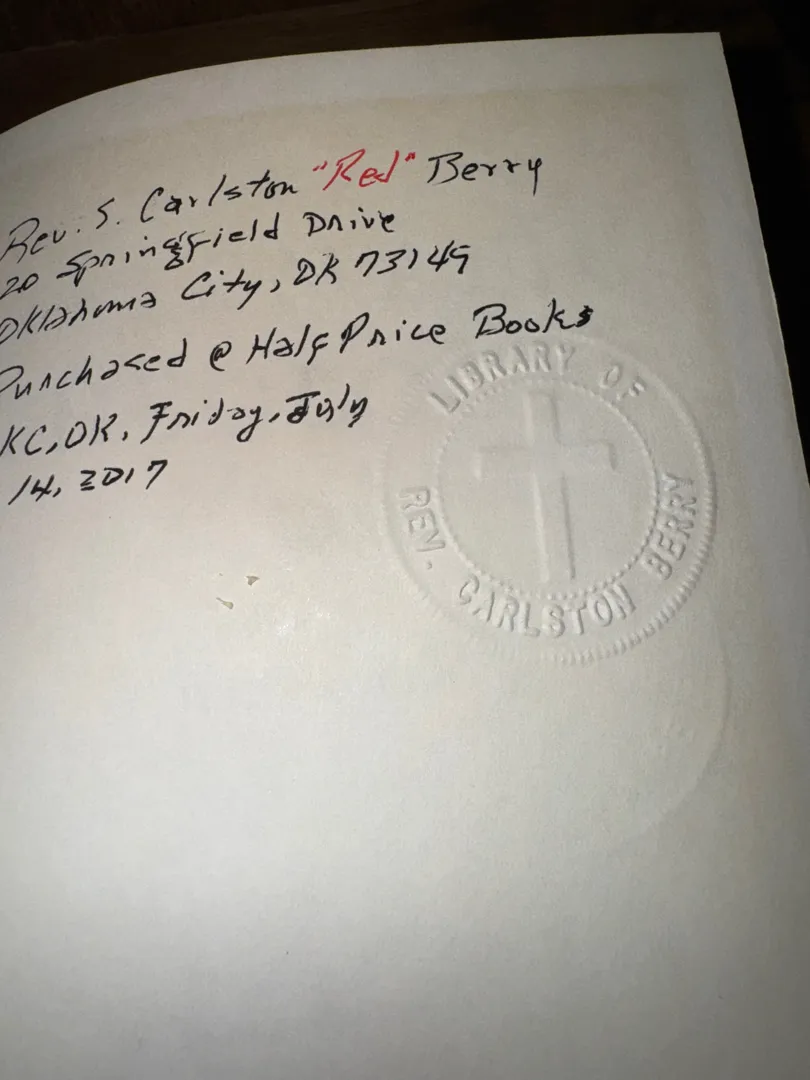 Rev. S. Carlston "Red" Berry
20 Springfield Drive
Oklahoma City, OK 73149
Purchased @ Half Price Books
KC, OK, Friday, July
14, 2017
LIBRARY OF
REV. CARLSTON BERRY